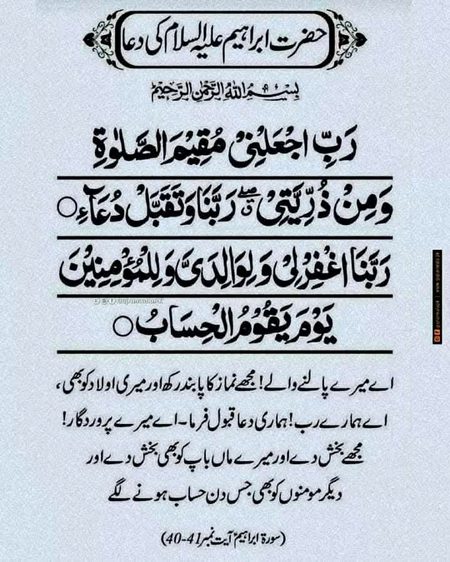 حضرت ابراہیم علیہ السلام کی دعا
بِسْمِ اللهِ الرَّحْمٰنِ الرَّحِيْمِ
رَبِّ اجْعَلْنِیْ مُقِیْمَ الصَّلٰوةِ
وَمِنْ ذُرِّیَّتِیْ ۖ ق رَبَّنَا وَتَقَبَّلْ دُعَآءِ ○
رَبَّنَا اغْفِرْلِیْ وَلِوَالِدَیَّ وَلِلْمُؤْمِنِیْنَ
یَوْمَ یَقُوْمُ الْحِسَابُ ○
اے میرے پالنے والے! مجھے نماز کا پابند رکھ اور میری اولاد کو بھی،
اے ہمارے رب! ہماری دعا قبول فرما۔ اے میرے پروردگار!
مجھے بخش دے اور میرے ماں باپ کو بھی بخش دے اور
دیگر مومنوں کو بھی جس دن حساب ہونے لگے
(سورۃ ابراہیم آیت نمبر 41-40)